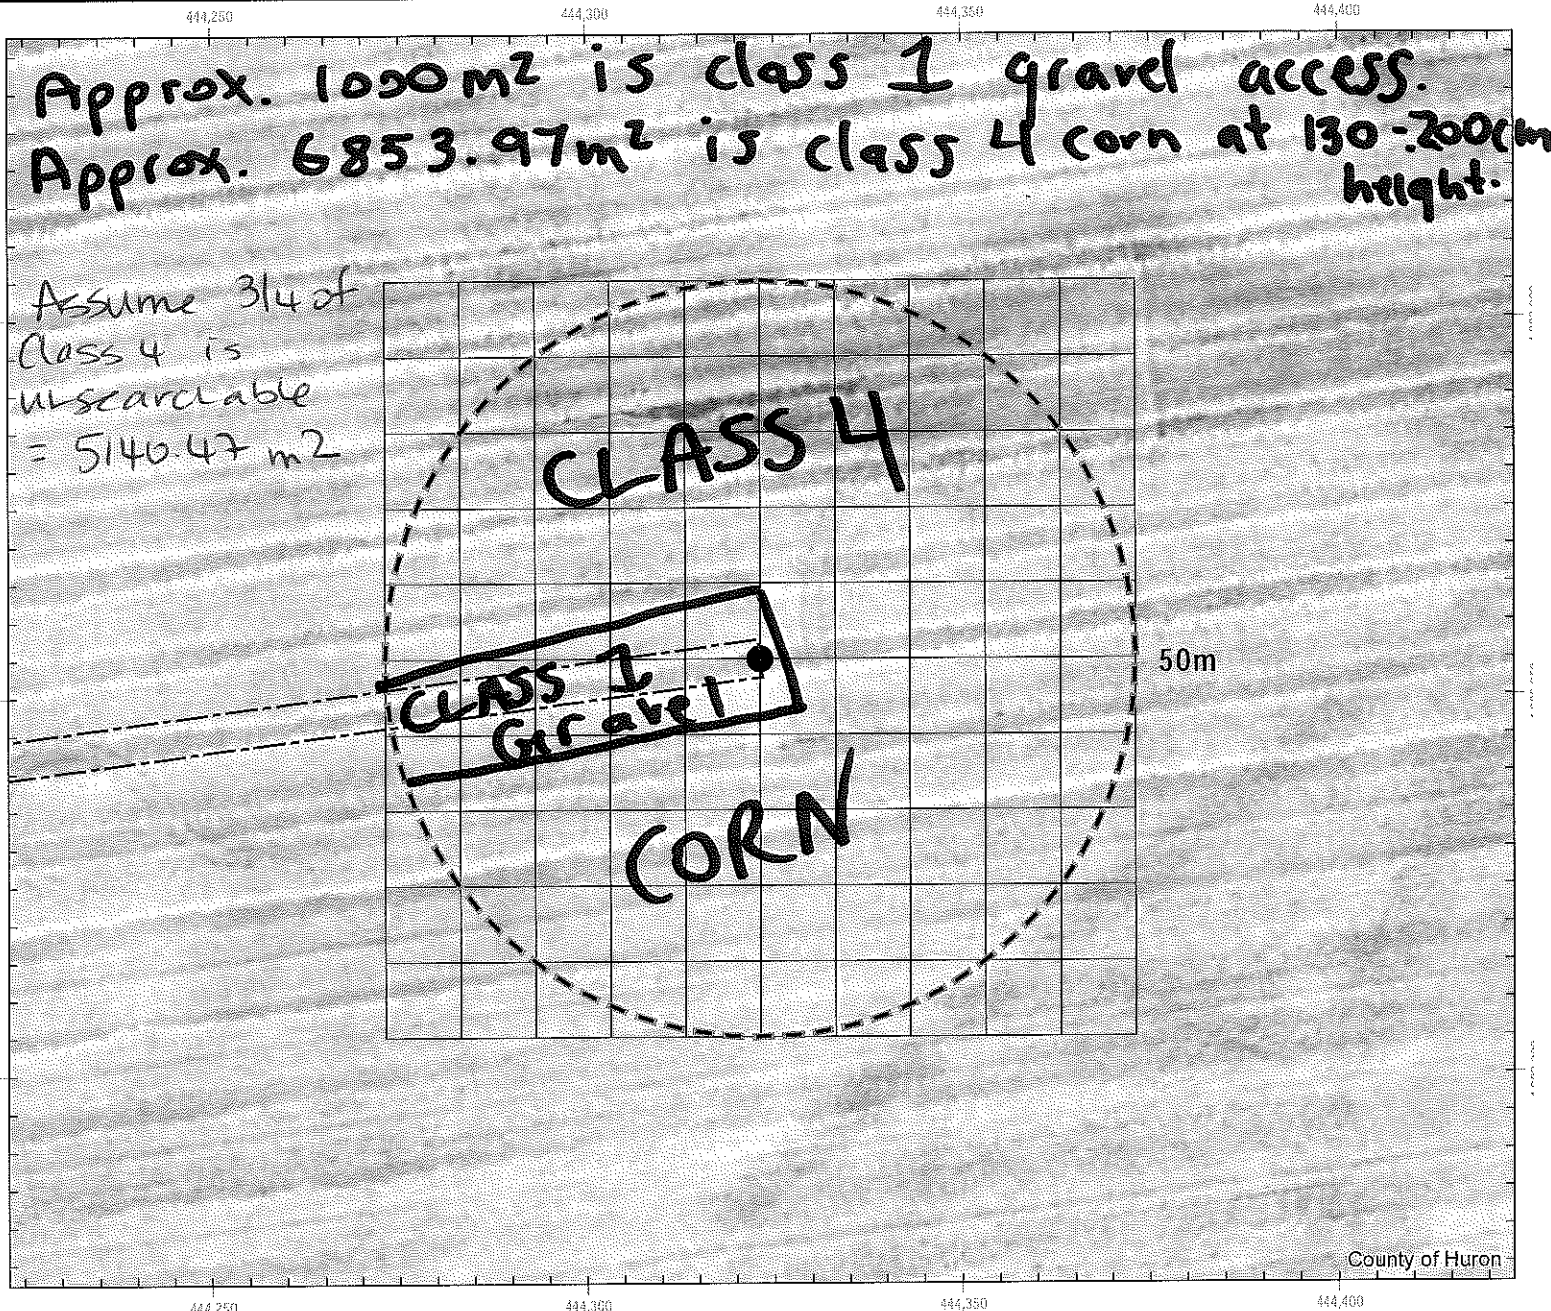 444,250 444,300 444,350 444,400
Approx. 1000m² is class 1 gravel access.
Approx. 6853.97m² is class 4 corn at 130-200cm
height.
Assume 3/4 of
Class 4 is
unsearchable
= 5140.47 m2
CLASS 4
50m
CLASS 1
Gravel
CORN
County of Huron
444,250 444,300 444,350 444,400